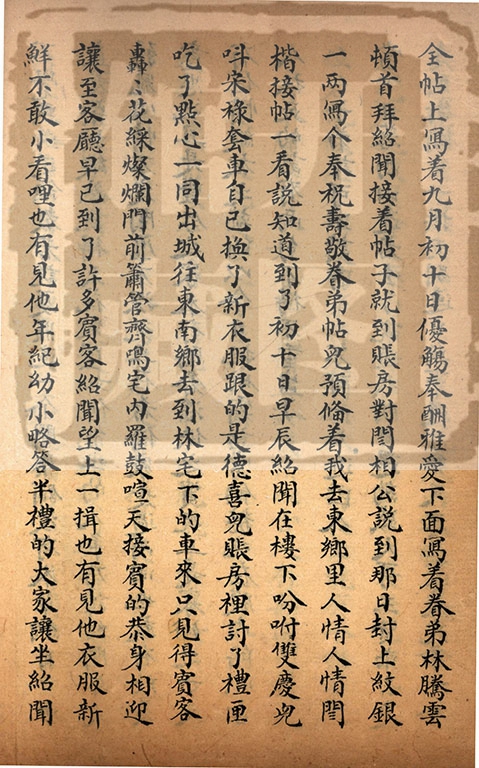 全帖上寫着九月初十日優觴奉酬雅愛下面寫着眷弟林騰雲
頓首拜紹聞接着帖子就到賬房對閆相公說到那日封上紋銀
一兩寫个奉祝壽敬眷弟帖兒預俻着我去東鄉里人情人情閆
楷接帖一看說知道到了初十日早辰紹聞在樓下吩咐雙慶兒
呌宋祿套車自已換了新衣服跟的是德喜兒賬房裡討了禮匣
吃了點心一同出城徃東南鄉去到林宅下的車來只見得賓客
轟〻花綵燦爛門前簫管齊鳴宅内羅鼓喧天接賓的恭身相迎
讓至客廳早已到了許多賓客紹聞望上一揖也有見他衣服新
鮮不敢小看哩也有見他年紀幼小略答半禮的大家讓坐紹聞